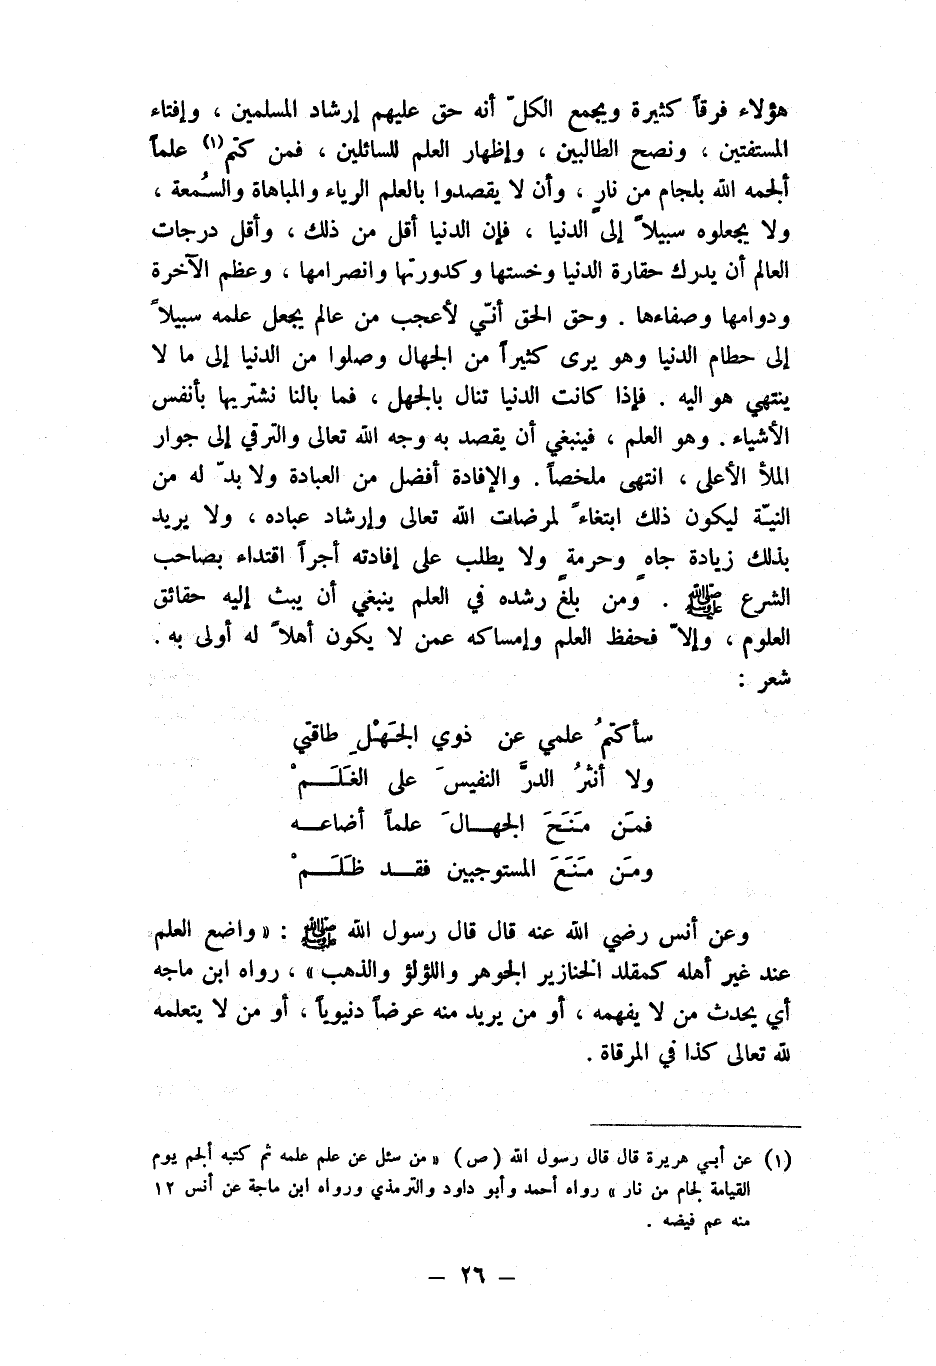 هؤلاء فرقاً كثيرة ويجمع الكلّ أنه حق عليهم إرشاد المسلمين ، وإفتاء
المستفتين ، ونصح الطالبين ، وإظهار العلم للسائلين ، فمن كتم(١) علماً
ألجمه الله بلجام من نارٍ ، وأن لا يقصدوا بالعلم الرياء والمباهاة والسُمعة ،
ولا يجعلوه سبيلاً إلى الدنيا ، فإن الدنيا أقل من ذلك ، وأقل درجات
العالم أن يدرك حقارة الدنيا وخستها وكدورتها وانصرامها ، وعظم الآخرة
ودوامها وصفاءها . وحق الحق أنّي لأعجب من عالم يجعل علمه سبيلاً
إلى حطام الدنيا وهو يرى كثيراً من الجهال وصلوا من الدنيا إلى ما لا
ينتهي هو اليه . فإذا كانت الدنيا تنال بالجهل ، فما بالنا نشتريها بأنفس
الأشياء . وهو العلم ، فينبغي أن يقصد به وجه الله تعالى والترقي إلى جوار
الملأ الأعلى ، انتهى ملخصاً . والإفادة أفضل من العبادة ولا بدّ له من
النيّة ليكون ذلك ابتغاءً لمرضات الله تعالى وإرشاد عباده ، ولا يريد
بذلك زيادة جاهٍ وحرمةٍ ولا يطلب على إفادته أجراً اقتداء بصاحب
الشرع ﷺ . ومن بلغ رشده في العلم ينبغي أن يبث إليه حقائق
العلوم ، وإلاّ فحفظ العلم وإمساكه عمن لا يكون أهلاً له أولى به .
شعر :
سأكتمُ علمي عن ذوي الجَهْلِ طاقتي
ولا أنثرُ الدرَّ النفيسَ على الغَلَـــمْ
فمَن مَنَحَ الجهـــالَ علماً أضاعـــه
ومَن مَنَعَ المستوجبين فقـــد ظَلَـــمْ
وعن أنس رضي الله عنه قال قال رسول الله ﷺ : « واضع العلم
عند غير أهله كمقلد الخنازير الجوهر واللؤلؤ والذهب » ، رواه ابن ماجه
أي يحدث من لا يفهمه ، أو من يريد منه عرضاً دنيوياً ، أو من لا يتعلمه
لله تعالى كذا في المرقاة .
(١) عن أبـي هريرة قال قال رسول الله (ص) « من سئل عن علم علمه ثم كتبه ألجم يوم
القيامة لجام من نار » رواه أحمد وأبو داود والترمذي ورواه ابن ماجة عن أنس ١٢
منه عم فيضه .
– ٢٦ –